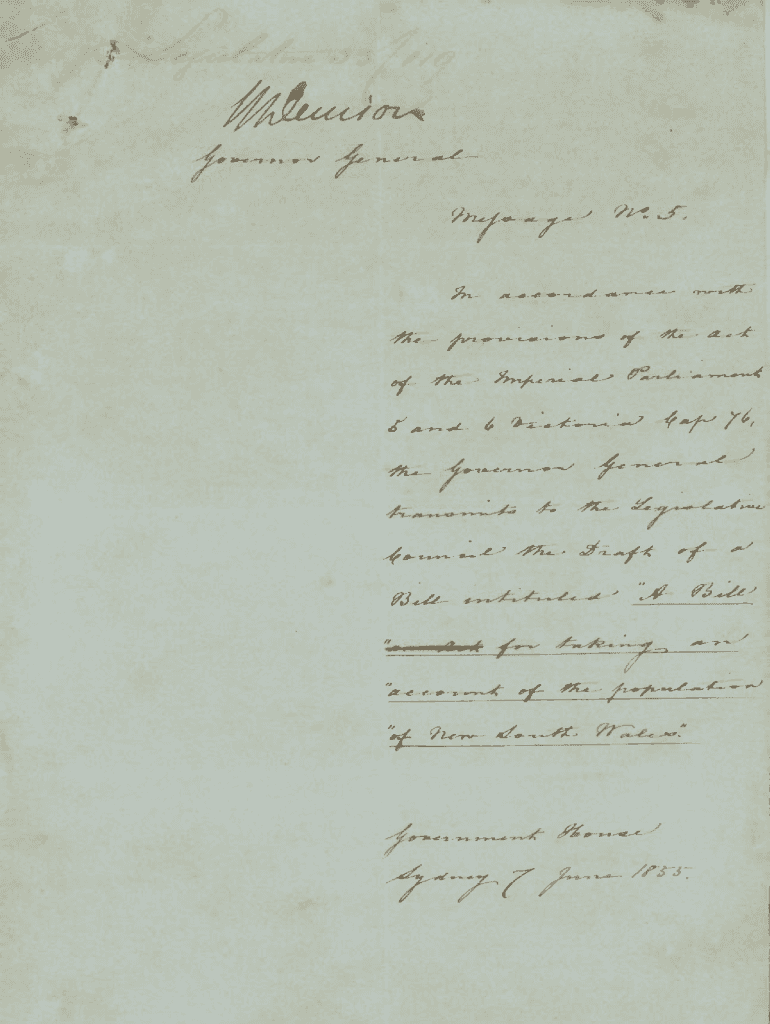 Legislative
W Denison
Governor General
Message No. 5.
In accordance with
the provisions of the Act
of the Imperial Parliament
5 and 6 Victoria Cap 76,
the Governor General
transmits to the Legislative
Council the Draft of a
Bill intituled "A Bill
" for taking an
"account of the population
"of New South Wales".
Government House
Sydney 7 June 1855.